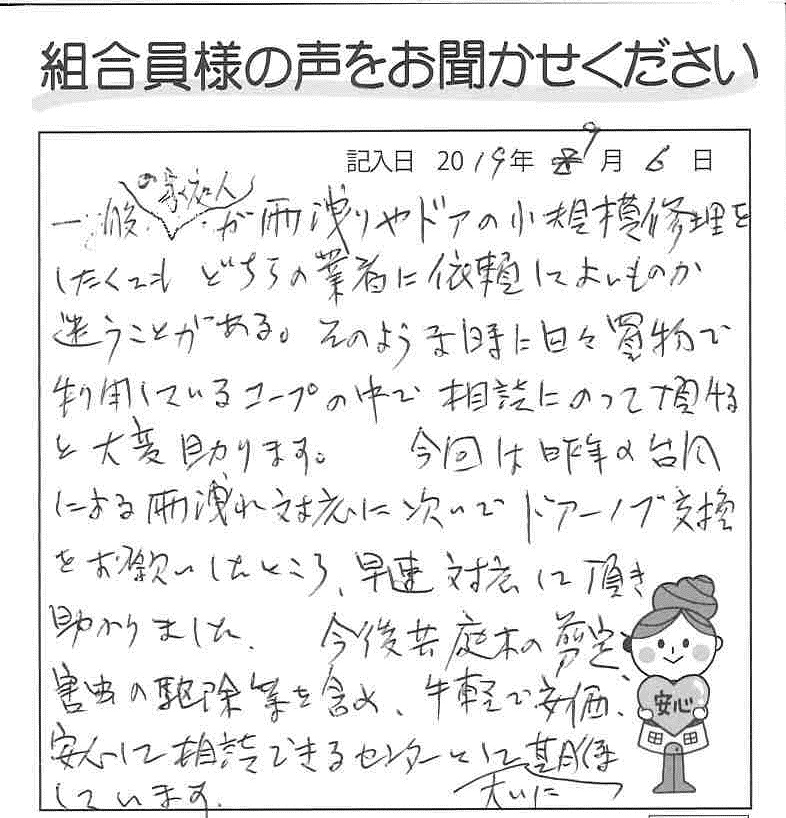 組合員様の声をお聞かせください
記入日 2019年 9月 6日
一般の家庭人が雨洩りやドアの小規模修理を
したくても どちらの業者に依頼してよいものか
迷うことがある。そのような時に日々買物で
利用しているコープの中で 相談にのって頂ける
と大変助かります。 今回は昨年の台風
による雨洩れ対応に次いでドアーノブ交換
をお願いしたところ、早速対応して頂き
助かりました。 今後共庭木の剪定、
害虫の駆除等を含め、手軽で安価、
安心して相談できるセンターとして大いに期待
しています。
安心